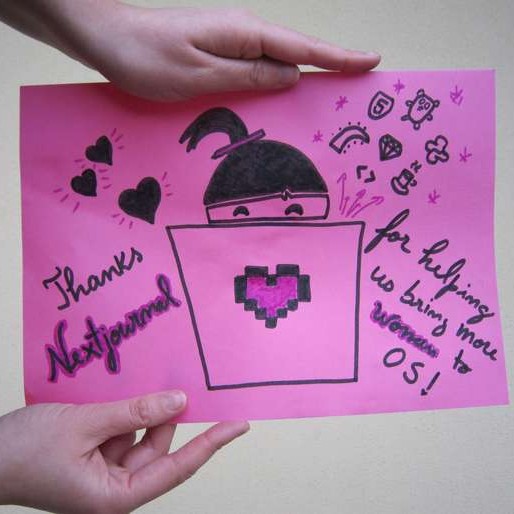 Thanks
Nextjournal
for helping
us bring more
women to
OS!
5